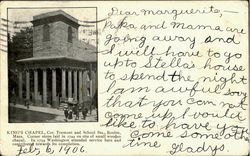 Dear Marguerite,
Papa and Mama are
going away and
I will have to go
up to Stella's house
to spend the night
I am awful sorry
that you can not
come up. I would
like to have you
come some oth
time Gladys
KING'S CHAPEL, Cor. Tremont and School Sts., Boston,
Mass. Corner stone laid in 1749 on site of small wooden
chapel. In 1789 Washington attended service here and
contributed towards its completion.
Feb, 6, 1906.